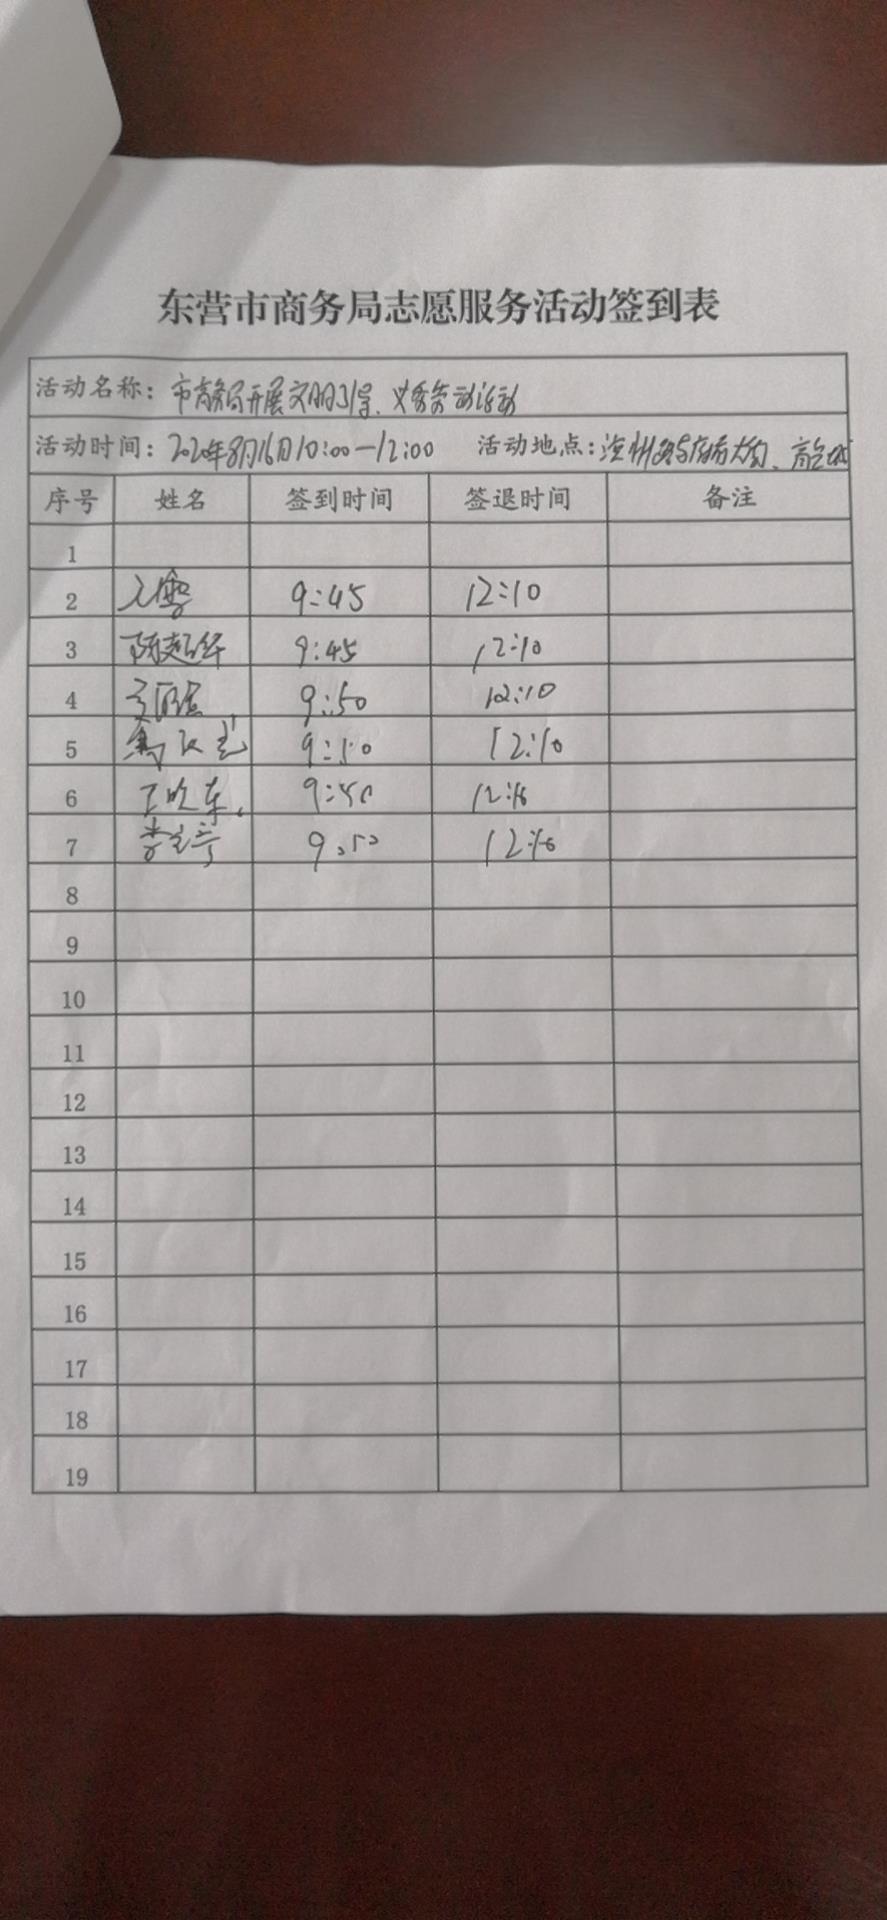 东营市商务局志愿服务活动签到表
活动名称：市商务局开展文明引导、义务劳动活动
活动时间：2020年8月16日10:00—12:00 活动地点：
序号 姓名 签到时间 签退时间 备注
1
2 9:45 12:10
3 9:45 12:10
4 9:50 12:10
5 9:50 12:10
6 9:50 12:10
7 9:50 12:10
8
9
10
11
12
13
14
15
16
17
18
19